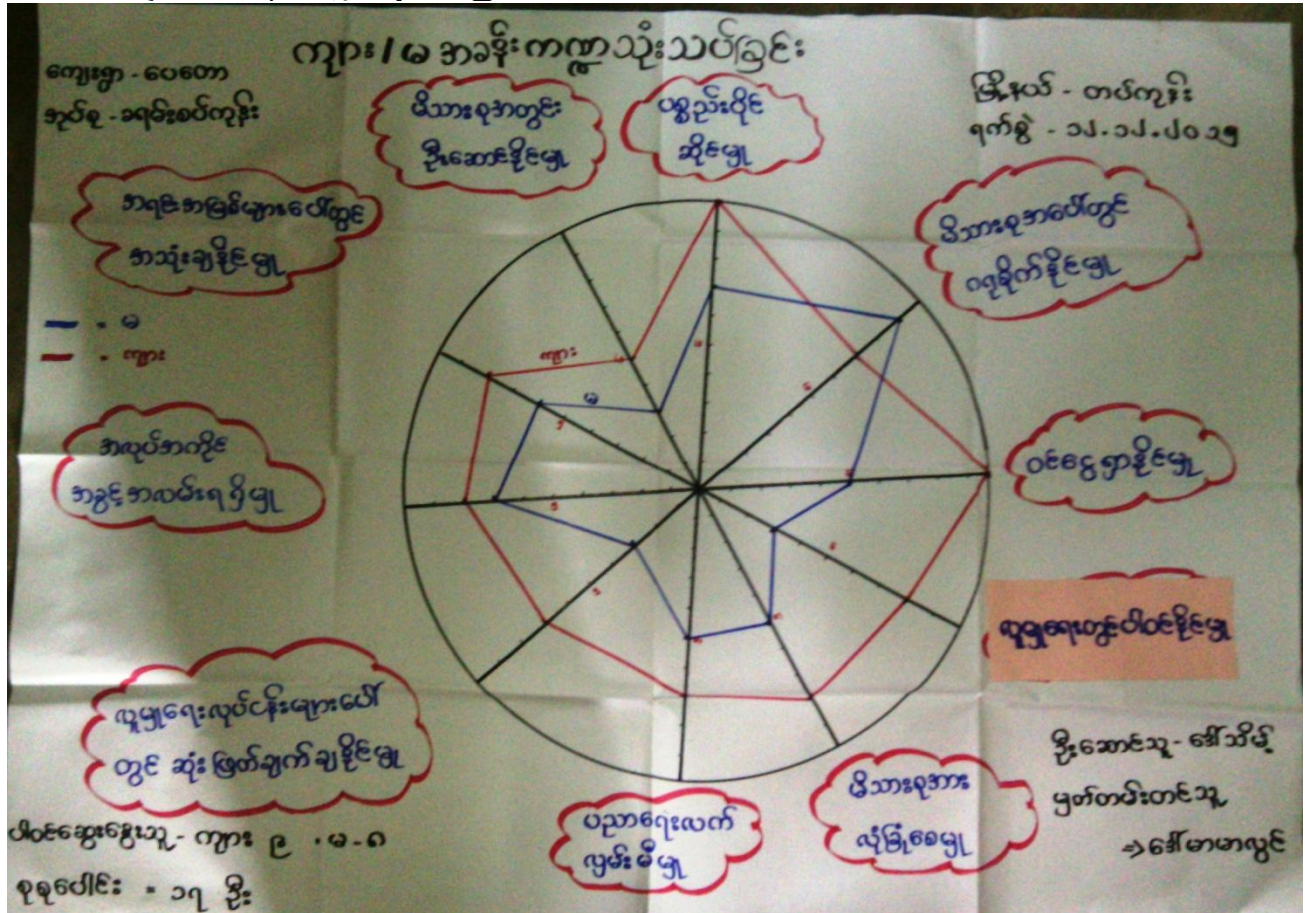 ကျား/မ အခန်းကဏ္ဍသုံးသပ်ခြင်း
ကျေးရွာ - ပေတော
အုပ်စု - ခရမ်းစပ်ကုန်း
မြို့နယ် - တပ်ကုန်း
ရက်စွဲ - ၁၂.၁၂.၂၀၁၅
မိသားစုအတွင်း
ဦးဆောင်နိုင်မှု
ပစ္စည်းပိုင်
ဆိုင်မှု
အရင်းအမြစ်များပေါ်တွင်
အသုံးချနိုင်မှု
မိသားစုအပေါ်တွင်
ဂရုစိုက်နိုင်မှု
- မ
- ကျား
ကျား
မ
အလုပ်အကိုင်
အခွင့်အလမ်းရရှိမှု
ဝင်ငွေရှာနိုင်မှု
လူမှုရေးတွင်ပါဝင်နိုင်မှု
လူမှုရေးလုပ်ငန်းများပေါ်
တွင် ဆုံးဖြတ်ချက်ချနိုင်မှု
ပညာရေးလက်
လှမ်းမီမှု
မိသားစုအား
လုံခြုံစေမှု
ဦးဆောင်သူ - ဒေါ်သိမ့်
မှတ်တမ်းတင်သူ
⇒ ဒေါ်မာမာလွင်
ပါဝင်ဆွေးနွေးသူ - ကျား ၉ ၊ မ - ၈
စုစုပေါင်း = ၁၇ ဦး